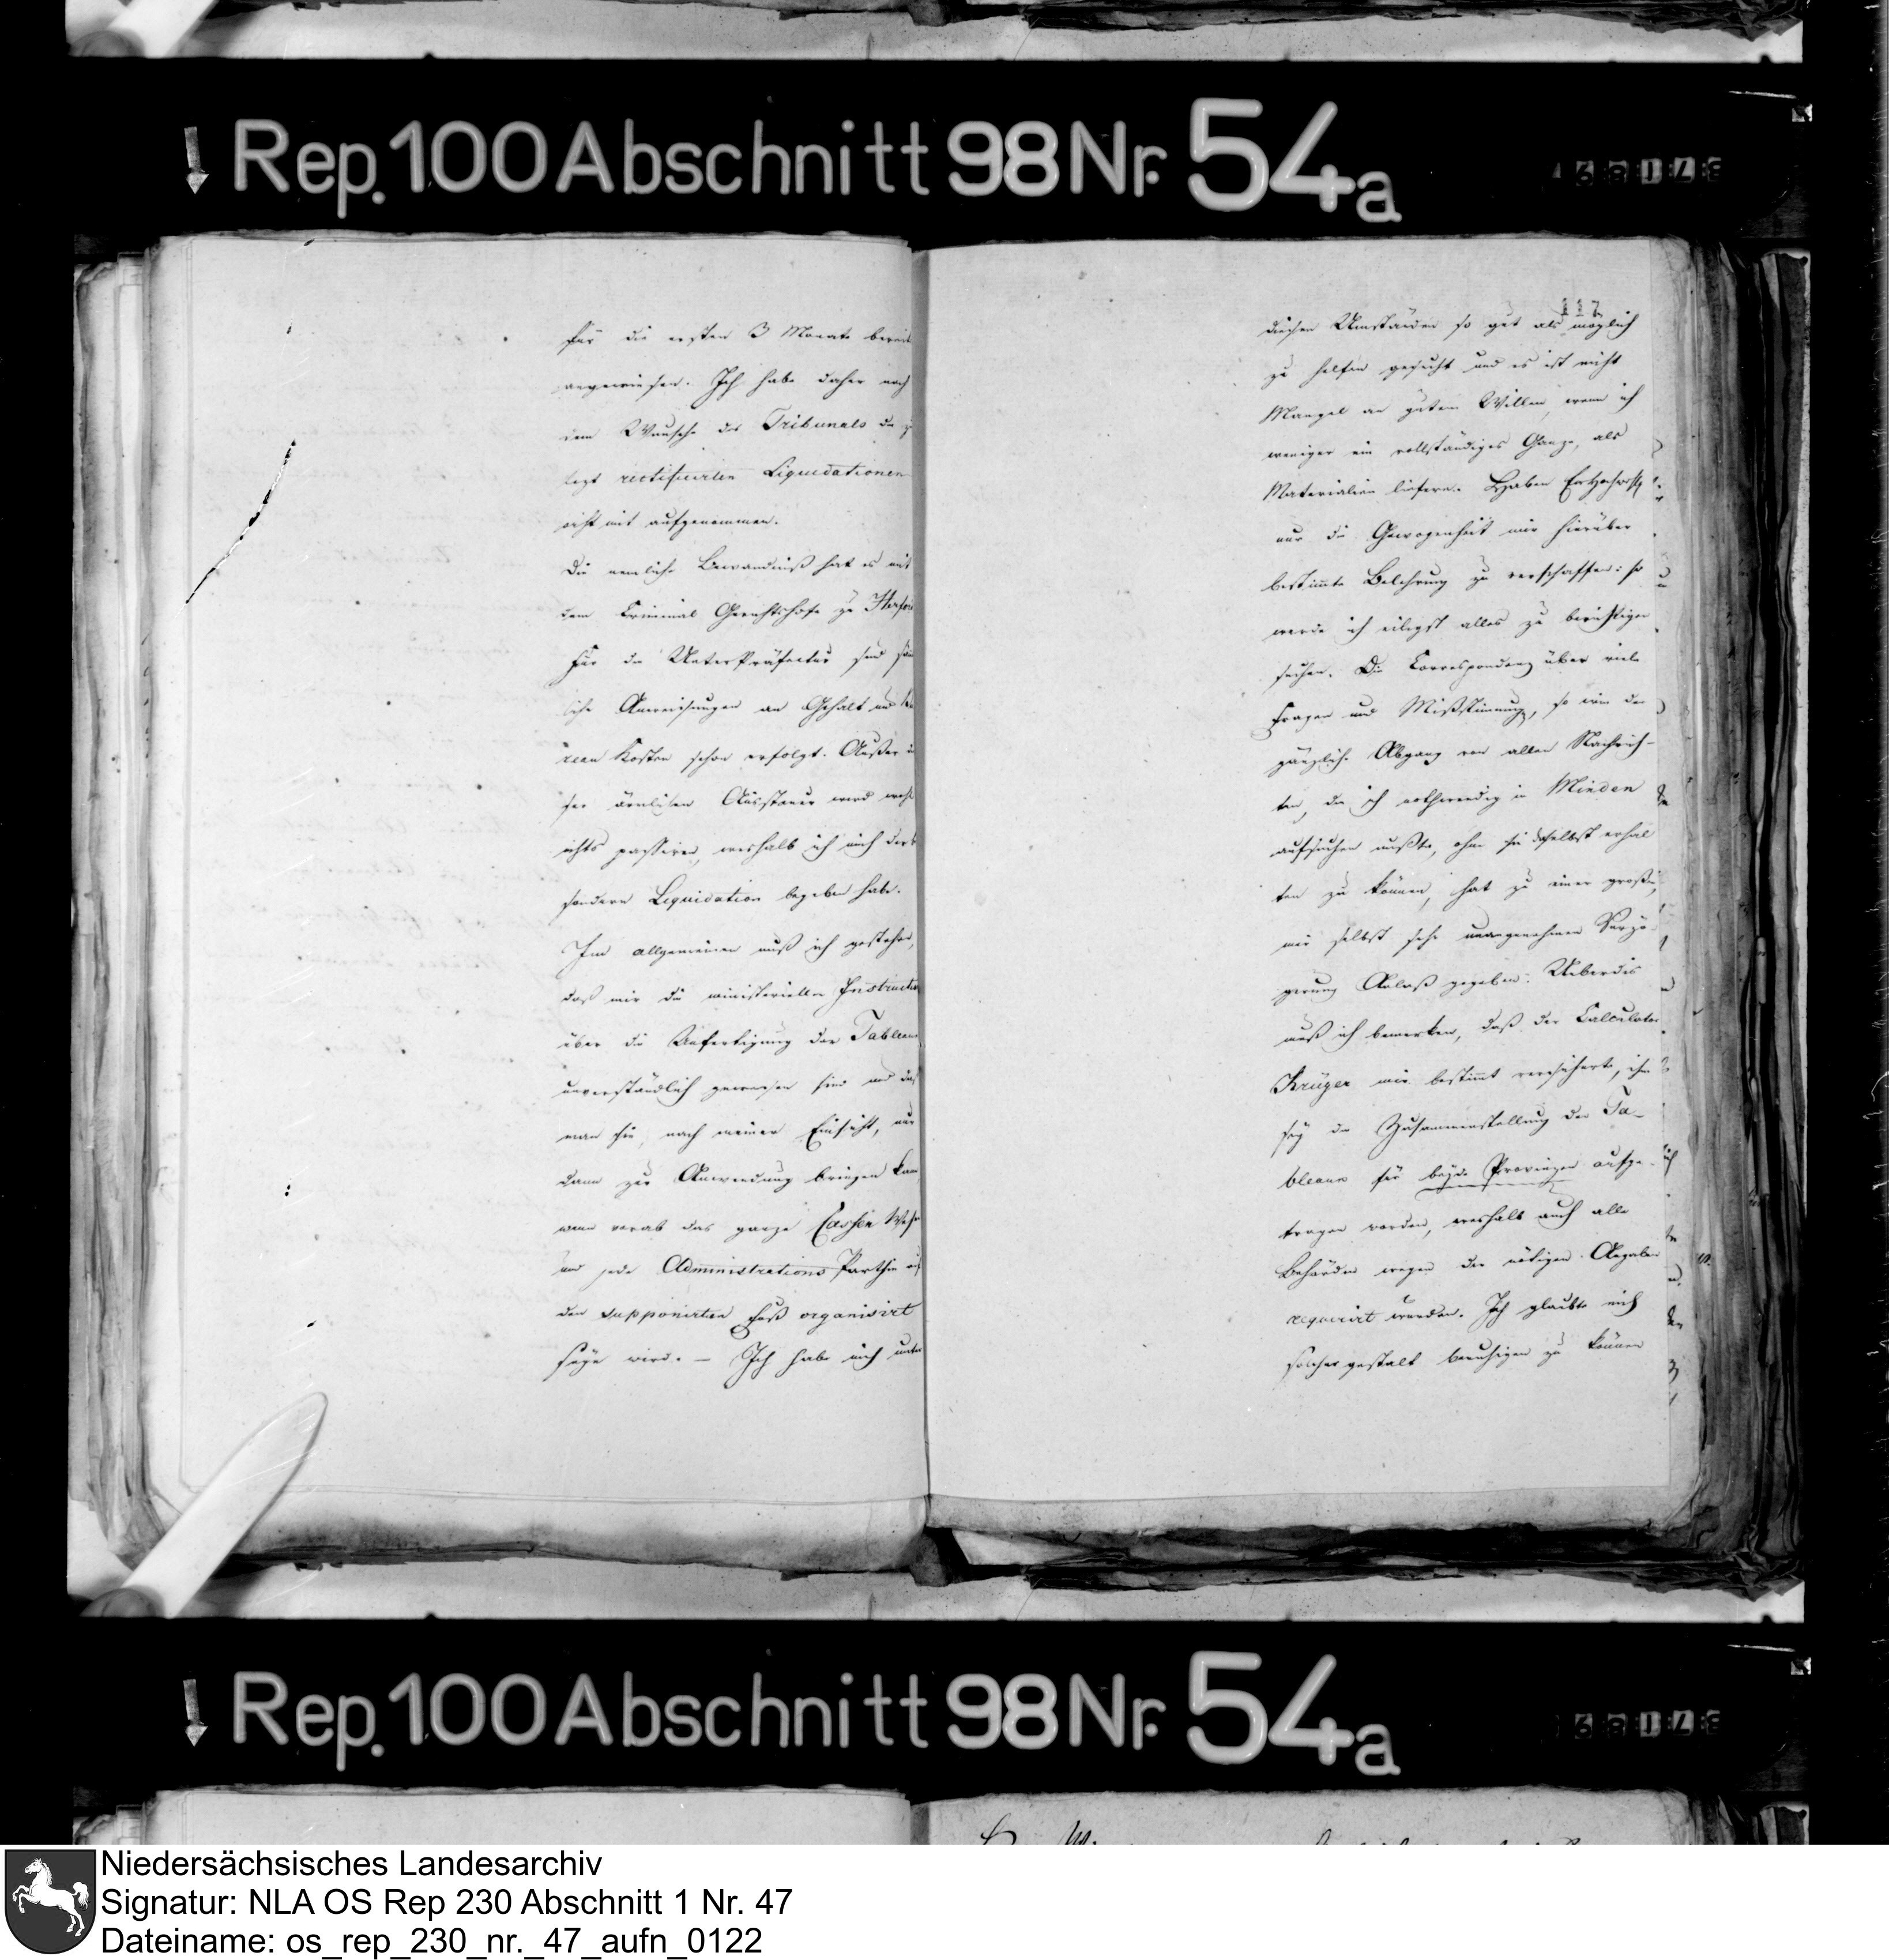 Rep. 100 Abschnitt 98 Nr. 54a
für die ersten 3 Monate bereits
angewiesen. Ich habe daher nach
dem Wunsche des Tribunals die
rectificirten Liquidationen
nicht mit aufgenommen.
Die nemliche Bewandniß hat es mit
dem Criminal Gerichtshofe zu Herford
Für die UnterPräfectur sind
Anweisungen an Gehalt und
Kosten schon erfolgt. Außer
wird wohl
nichts passiren, weshalb ich mich
sondern Liquidation begeben habe.
Im allgemeinen muß ich gestehen,
daß mir die ministeriellen Instruction
über die Anfertigung der Tableaux
unverständlich gewesen sind und daß
man sie, nach meiner Einsicht, nur
dann zur Anwendung bringen kann
wenn vorab das ganze Cassen
und jede Administrations Parthie auf
den supponirten Fuß organisirt
seyn wird. — Ich habe mich unter
117
diesen Umständen so gut als möglich
zu helfen gesucht und es ist nicht
Mangel an gutem Willen, wenn ich
weniger ein vollständiges Ganze, als
Materialien liefere. Haben
nur die Gewogenheit mir hierüber
bestimte Belehrung zu verschaffen: so
werde ich eiligst alles zu berichtigen
suchen. Die Correspondenz über viele
Fragen und Mißstimmung, so wie der
gänzliche Abgang von allen Nachrich-
ten, die ich nothwendig in Minden
aufsuchen mußte, ohne sie daselbst erhal
ten zu können, hat zu einer großen,
mir selbst sehr unangenehmen Verzö-
gerung Anlaß gegeben. Ueberdies
muß ich bemerken, daß der Calculator
Krüger mir bestimt versicherte, ihm
sey die Zusammenstellung der Ta-
bleaux für beyde Provinzen aufge-
tragen worden, weshalb auch alle
Behörden wegen der nötigen Angaben
requirirt wurden. Ich glaubte mich
solchergestalt beruhigen zu können
Rep. 100 Abschnitt 98 Nr. 54a
Niedersächsisches Landesarchiv
Signatur: NLA OS Rep 230 Abschnitt 1 Nr. 47
Dateiname: os_rep_230_nr._47_aufn_0122